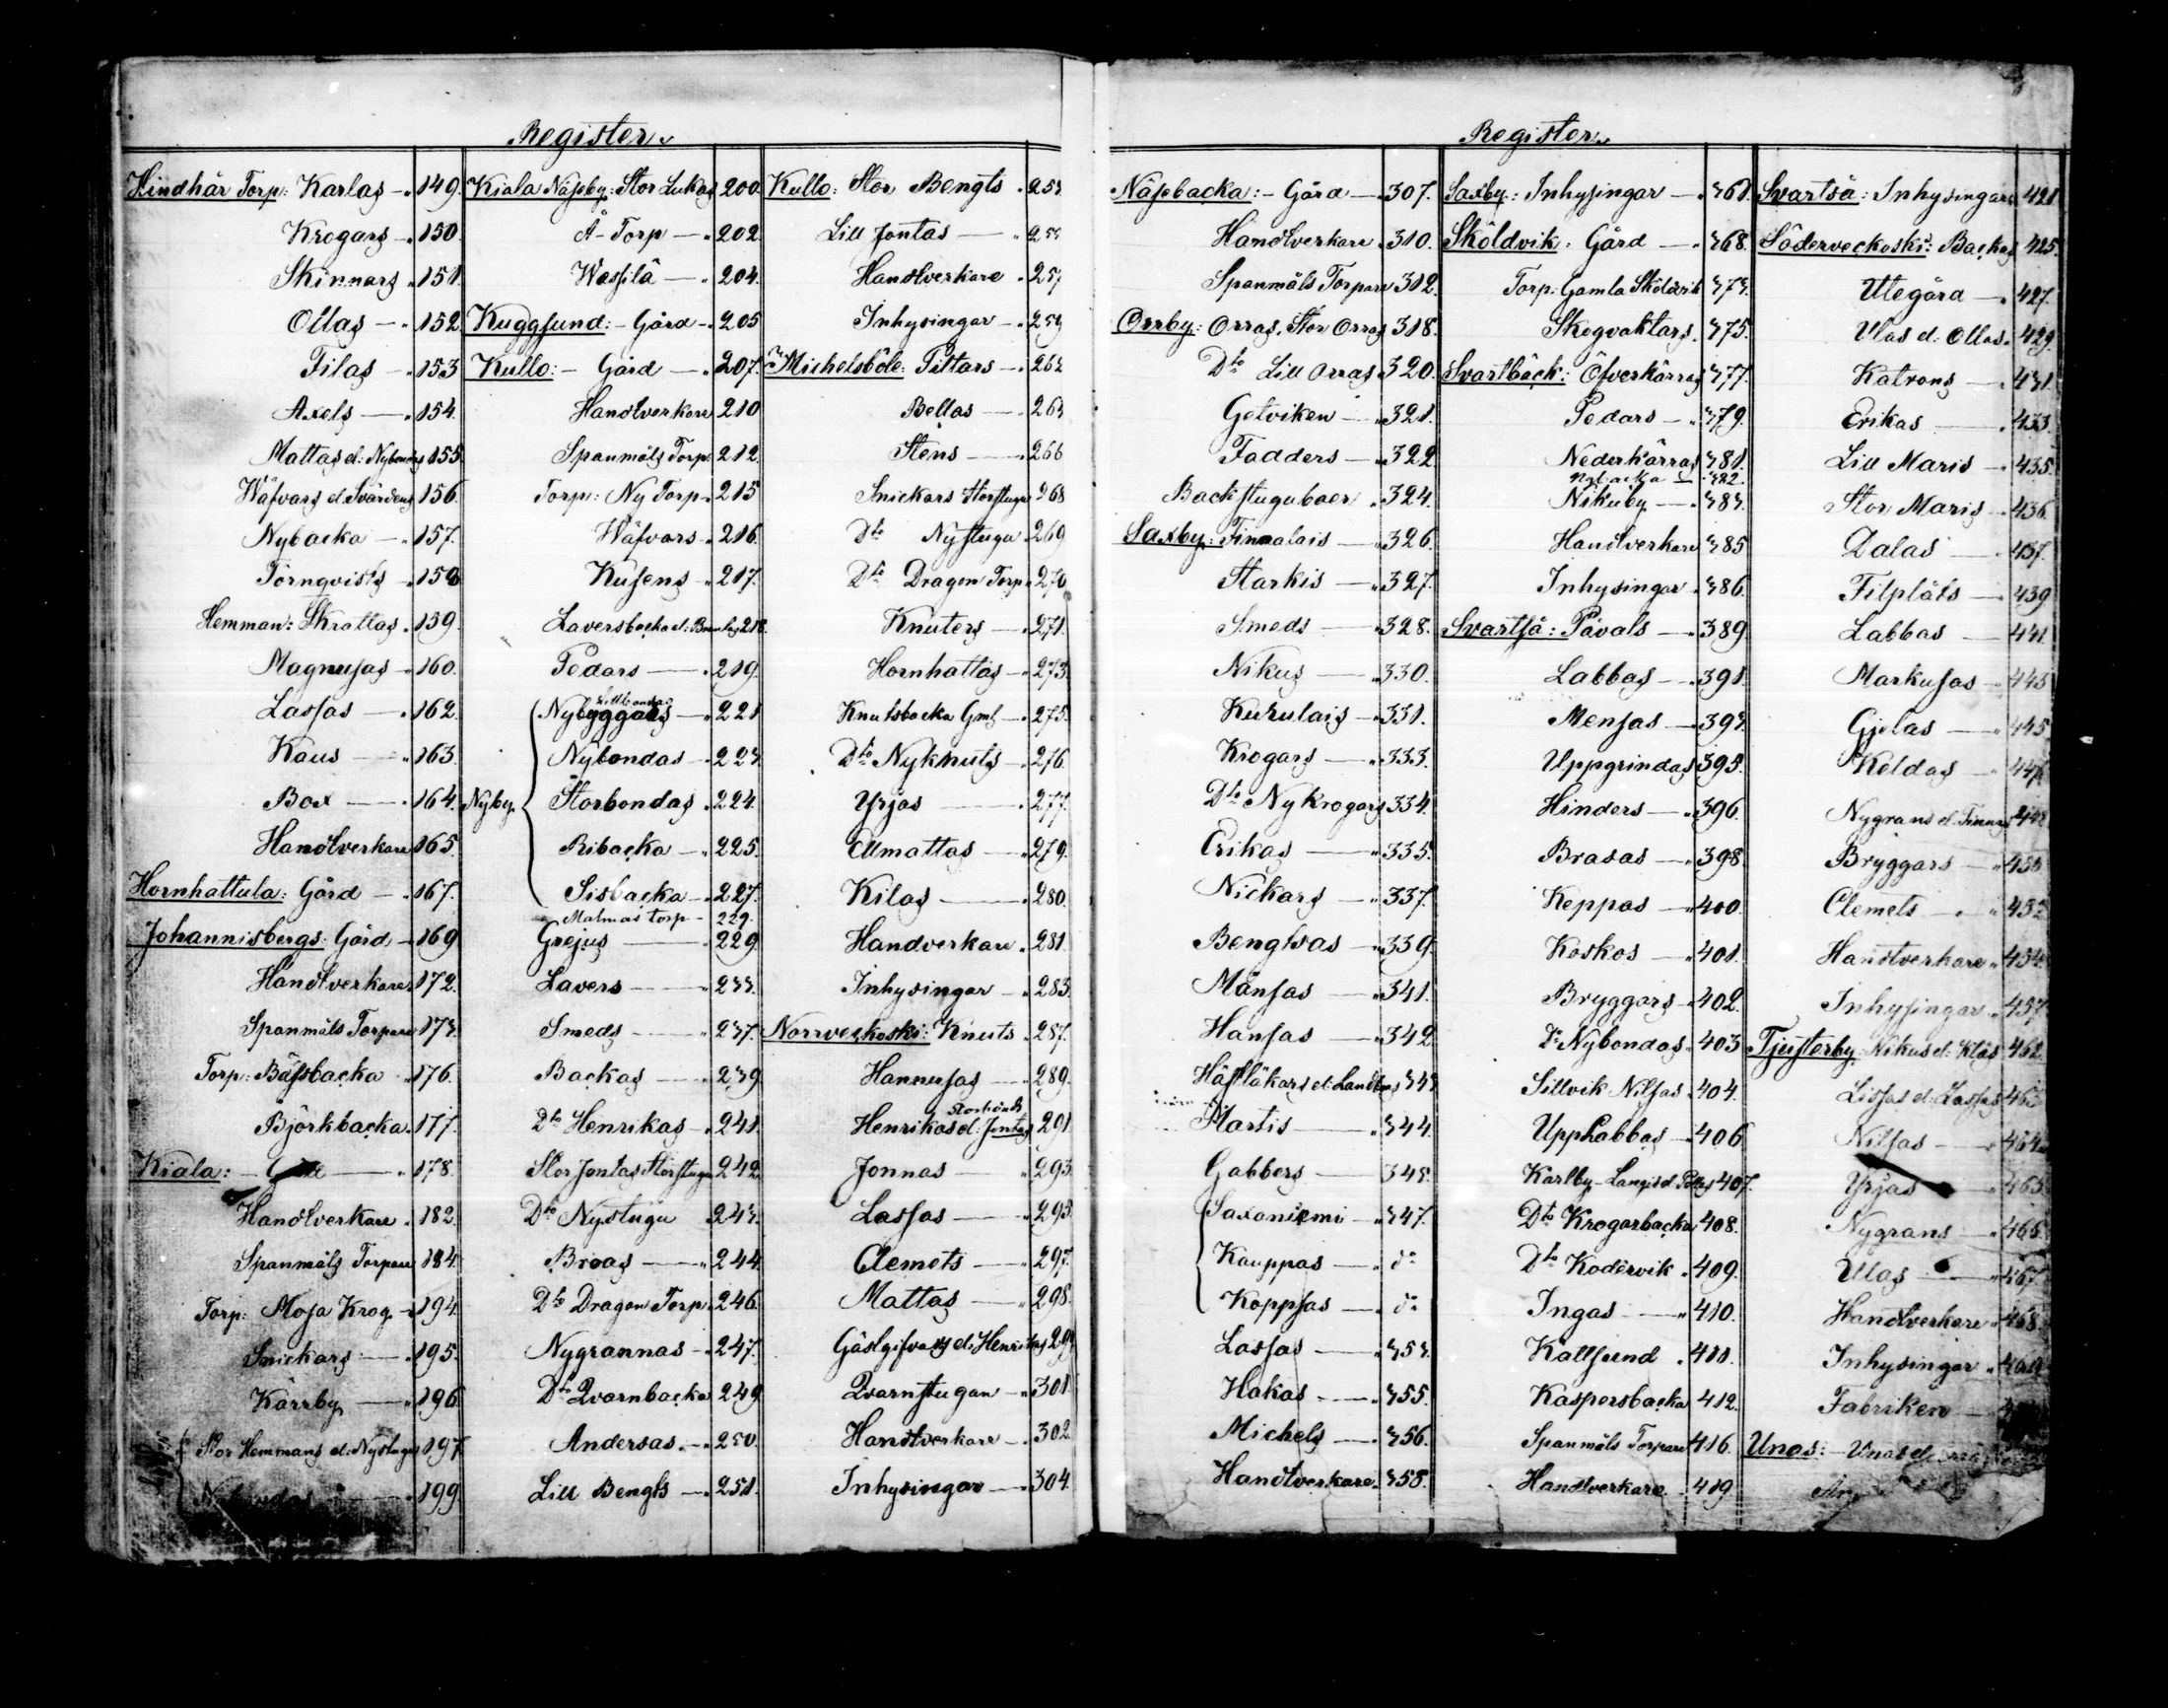 Register.
Hindhår Torp: Karlas 149.
Krogars 150.
Skinnars 151.
Ollas 152
Filas 153
Axels 154.
Mattas el: Nybondas 155
Wäfvars el. Svärdens 156.
Nybacka 157.
Törnqvists 158
Hemman: Skrattas 159.
Magnusas 160.
Lassas 162.
Kaus 163.
Box 164.
Handtverkare 165.
Hornhattula: Gård 167.
Johannisbergs: Gård 169
Handtverkare 172.
Spanmåls Torpare 173.
Torp: Båssbacka 176.
Björkbacka 177.
Kiala: 178.
Handtverkare 182.
Spanmåls Torpare 184.
Torp: Moja Krog 194.
Snickars 195.
Kärrby 196
Stor Hemmans el: Nystugu 197
199.
Kiala Näseby: Stor Lukas 200.
Å-Torp 202.
Wassilä 204.
Kuggsund: Gård 205
Kullo: Gård 207.
Handtverkare 210
Spanmåls Torp. 212.
Torp: Ny Torp 215
Wäfvars 216.
Kusens 217.
Laversbacka el: 218.
Pedars 219.
Lillbondas
Nybyggars 221
Nybondas 223.
Nyby. Storbondas 224.
Ribacka 225.
Sisbacka 227.
Malmas torp 229.
Grejus 229
Lavers 233.
Smeds 237.
Backas 239
Dto Henrikas 241.
Stor Jontas Storstugu 242
Dto Nystugu 243.
Broas 244.
Dto Dragon Torp 246.
Nygrannas 247.
Dto Qvarnbacka 249
Andersas 250.
Lill Bengts 251.
Kullo: Stor Bengts 253
Lill Jontas 255
Handtverkare 257
Inhysingar 259
Michelsböle: Tittars 262
Bellas 263
Stens 266
Snickars Storstugu 268
Dto Nystugu 269
Dto Dragon Torp 270
Knuters 271.
Hornhattas 273
Knutsbacka Gml 275.
Dto Nyknuts 276.
Yrjas 277.
Ellmattas 279.
Kilas 280
Handverkare 281.
Inhysingar 283.
Norrveckoski: Knuts 287.
Hannusas 289.
Henrikas el. Jontas 291
Jonnas 293
Lassas 295
Clemets 297.
Mattas 298.
Gästgifvars el: Henrikas 299
Qvarnstugan 301
Handtverkare 302
Inhysingar 304
Register.
Näsebacka: Gård 307.
Handtverkare 310.
Spanmåls Torpare 312.
Orrby: Orras, Stor Orras 318.
Dto Lill Orras 320.
Getviken 321.
Fadders 322
Backstugubaer 324.
Saxby: Finnalais 326.
Starkis 327.
Smeds 328.
Nikus 330.
Kukulais 331.
Krogars 333.
Dto Ny Krogars 334.
Erikas 335.
Nickars 337.
Bengtsas 339.
Månsas 341.
Hansas 342
Hästläkars el: Landbos 343
Martis 344.
Gabbers 345.
Saxaniemi 347.
Kauppas do
Koppsas do
Lassas 353.
Hakas 355.
Michels 356.
Handtverkare 358.
Saxby: Inhysingar 361.
Sköldvik: Gård 368.
Torp: Gamla Sköldvik 373.
Skogvaktars 375.
Svartbäck: Öfverkärras 377.
Pedars 379.
Nederkärras 381.
Nybacka 382.
Nikuby 383.
Handtverkare 385
Inhysingar 386.
Svartså: Påvals 389
Labbas 391.
Mensas 393.
Uppgrindas 395.
Hinders 396.
Brasas 398
Keppas 400.
Koskos 401.
Bryggars 402.
Do Nybondas 403
Sillvik Nilsas 404.
Upplabbas 406
Karlby Langis el 407.
Dto Krogarbacka 408.
Dto Kodervik 409.
Ingas 410.
Kallsund 411.
Kaspersbacka 412.
Spanmåls Torpare 416.
Handtverkare 419
Svartså: Inhysingar 421
Söderveckoski: Backas 425.
Utegårda 427.
Ulas el: Ollas 429.
Katrons 431.
Erikas 433
Lill Maris 435.
Stor Maris 436.
Dalas 437.
Filplåts 439
Labbas 441
Markusas 443
Gjelas 445
Keldas
Nygrans el. Finnas
Bryggars 450
Clemets 452
Handtverkare 454.
Inhysingar 457
Tjusterby: Nikus el: Klas 462.
Lissas el: Lassas
Nilsas 464
Yrjas 465
Nygrans 466.
Ulas 467
Handtverkare 468.
Inhysingar
Fabriken
Unas: Unas el